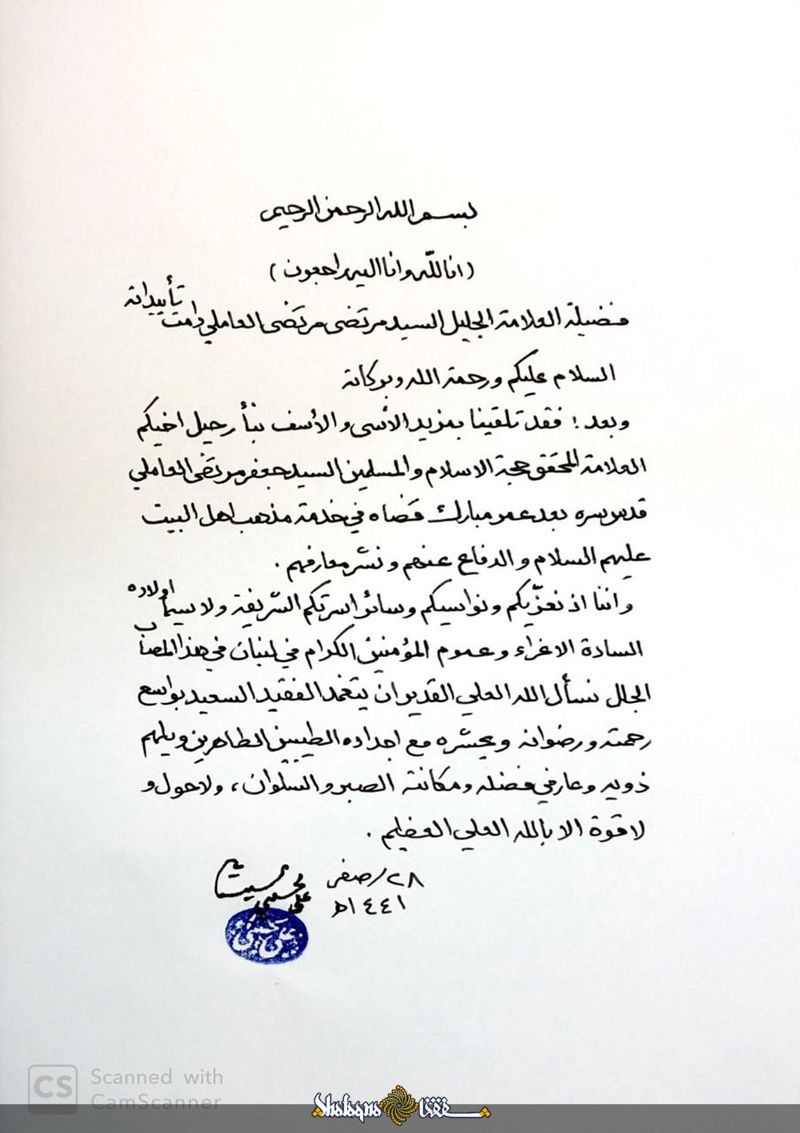 بسم الله الرحمن الرحيم
(انا لله وانا اليه راجعون)
فضيلة العلامة الجليل السيد مرتضى مرتضى العاملي دامت تأييداته
السلام عليكم ورحمة الله وبركاته
وبعد؛ فقد تلقينا بمزيد الأسى والأسف نبأ رحيل اخيكم
العلامة المحقق حجة الاسلام والمسلمين السيد جعفر مرتضى العاملي
قدس سره بعد عمر مبارك قضاه في خدمة مذهب اهل البيت
عليهم السلام والدفاع عنهم ونشر معارفهم.
واننا اذ نعزّيكم ونواسيكم وسائر اسرتكم الشريفة ولا سيما اولاده
السادة الاعزاء وعموم المؤمنين الكرام في لبنان في هذا المصاب
الجلل نسأل الله العلي القدير ان يتغمد الفقيد السعيد بواسع
رحمته ورضوانه ويحشره مع اجداده الطيبين الطاهرين ويلهم
ذويه وعارفي فضله ومكانته الصبر والسلوان، ولا حول و
لا قوة الا بالله العلي العظيم.
٢٨/صفر
١٤٤١هـ
علي الحسيني السيستاني
CS Scanned with
CamScanner
Shafaqna شفقنا